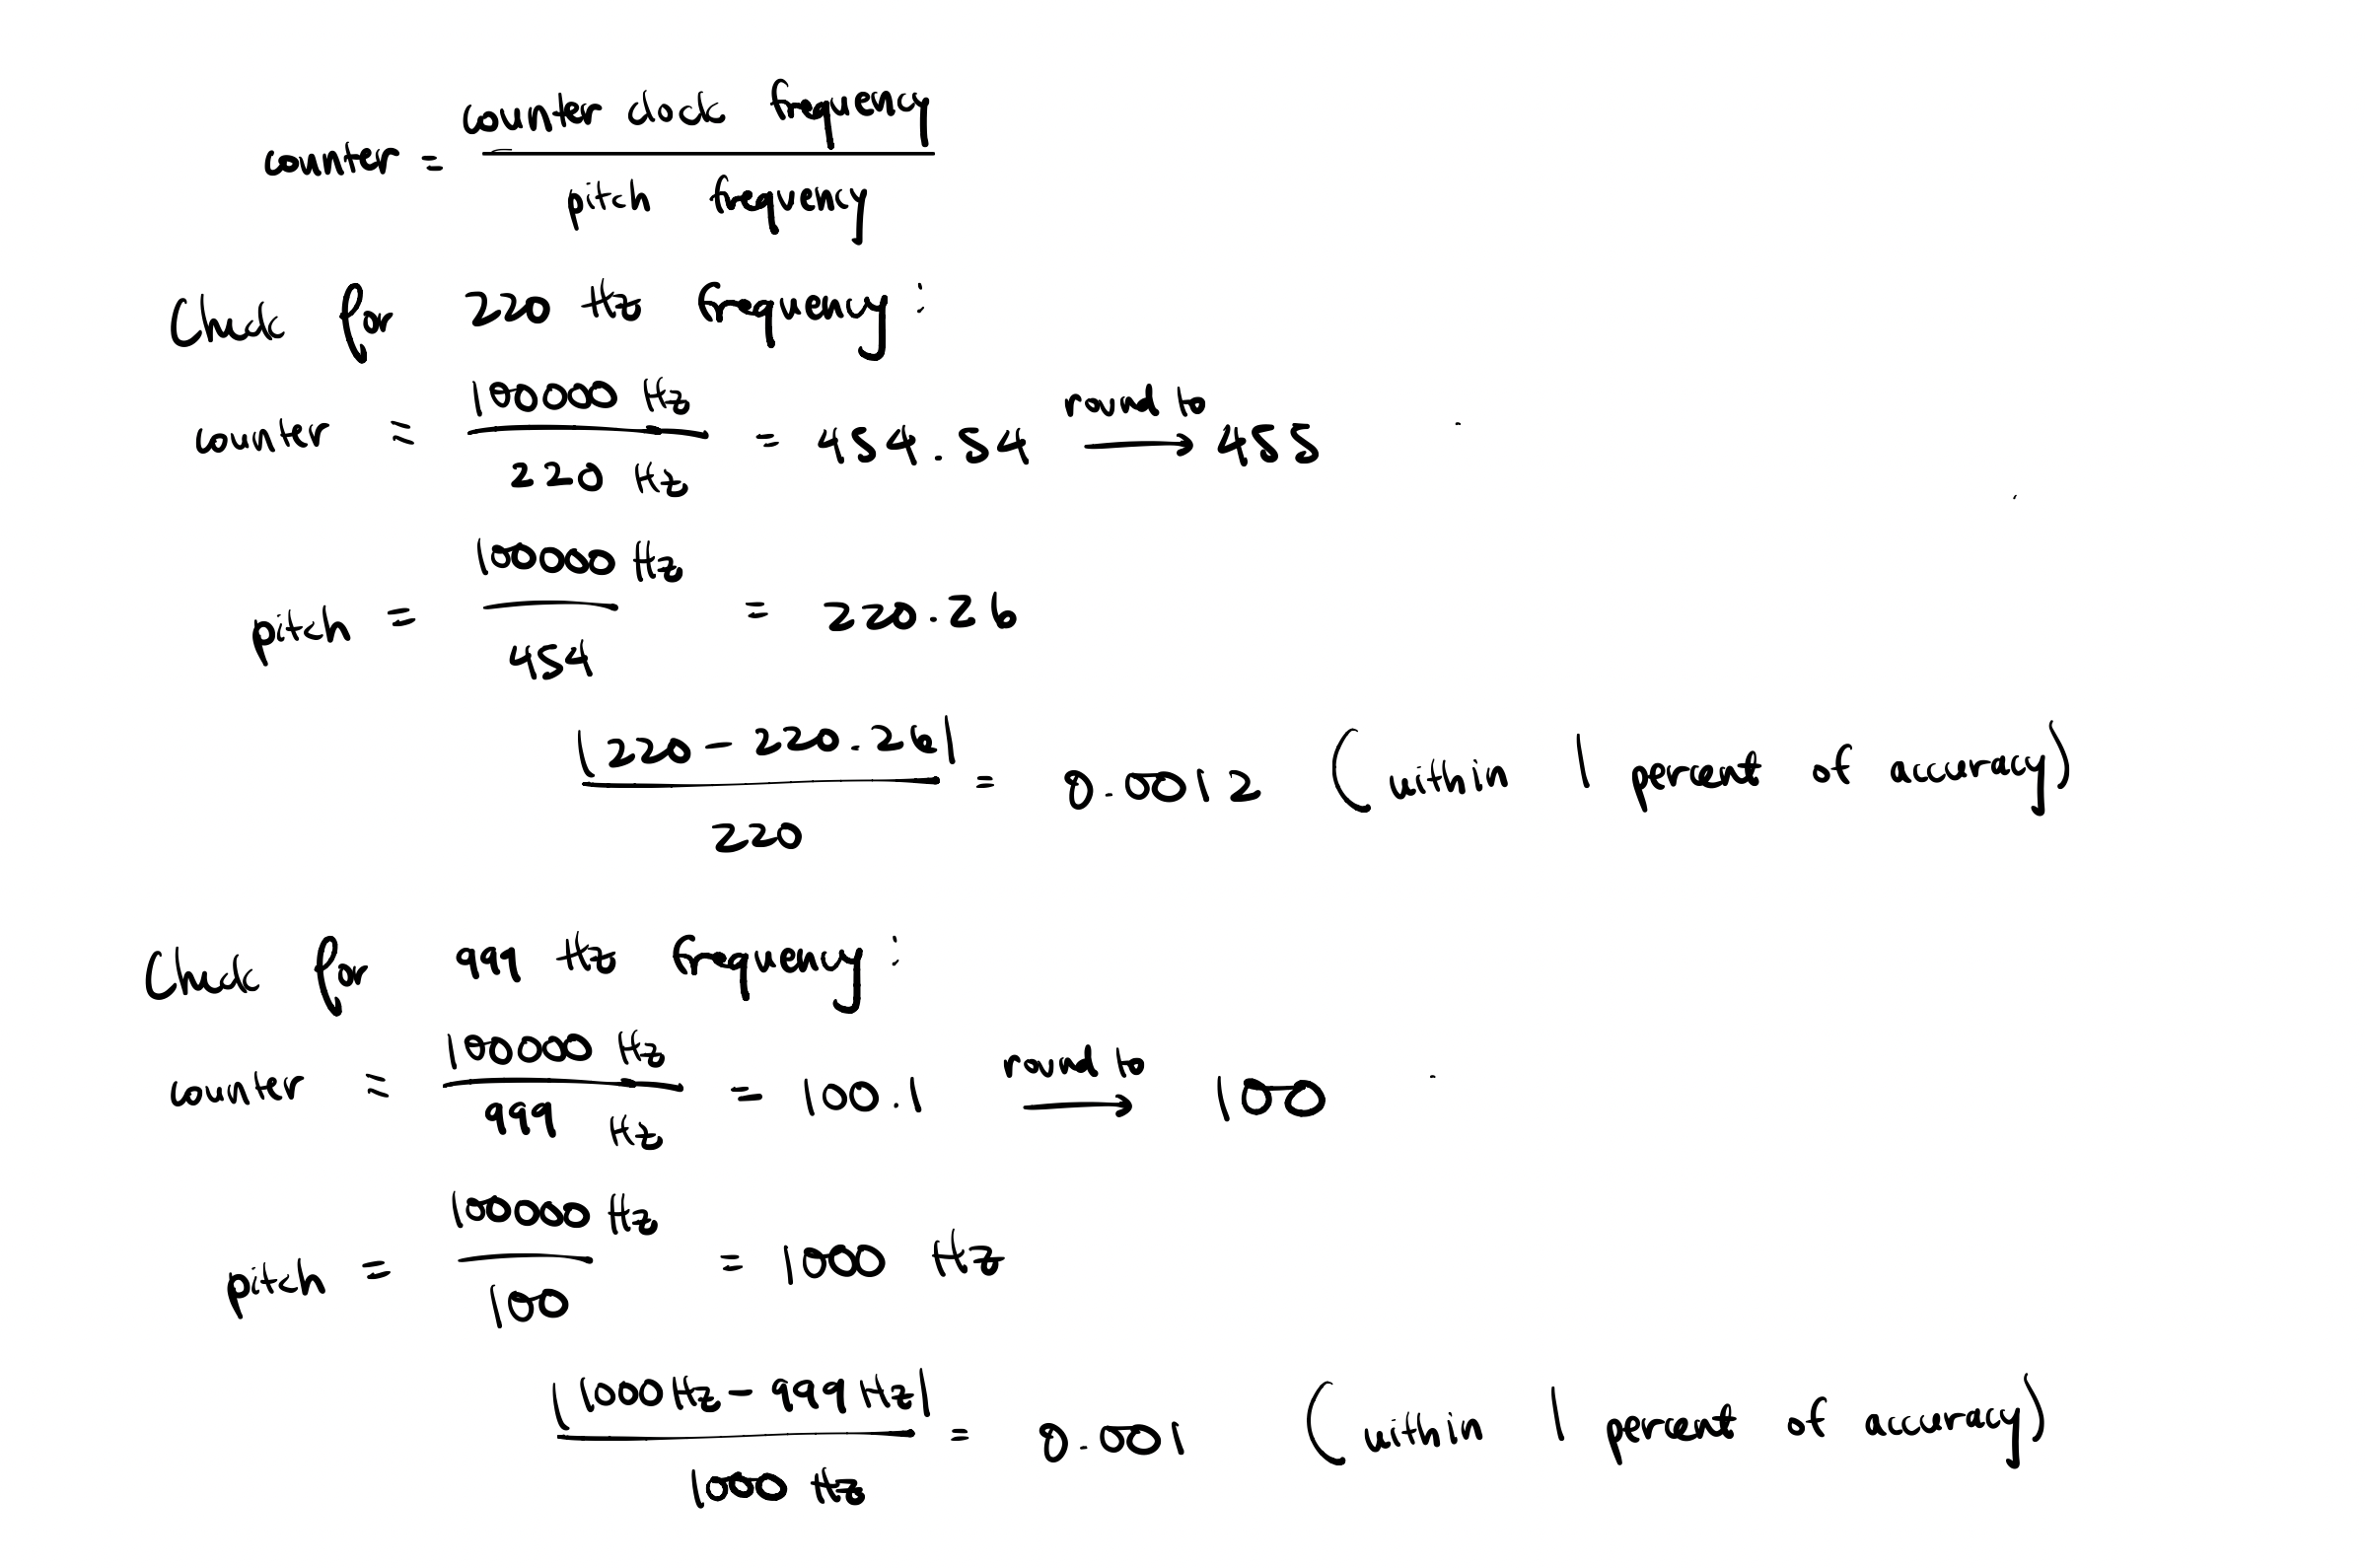 counter = counter clock frequency / pitch frequency
Check for 220 Hz frequency:
counter = 100000 Hz / 220 Hz = 454.54 round to → 455
pitch = 100000 Hz / 454 = 220.26
|220 - 220.26| / 220 = 0.0012 (within 1 percent of accuracy)
Check for 999 Hz frequency:
counter = 100000 Hz / 999 Hz = 100.1 round to → 100
pitch = 100000 Hz / 100 = 1000 Hz
|1000 Hz - 999 Hz| / 1000 Hz = 0.001 (within 1 percent of accuracy)